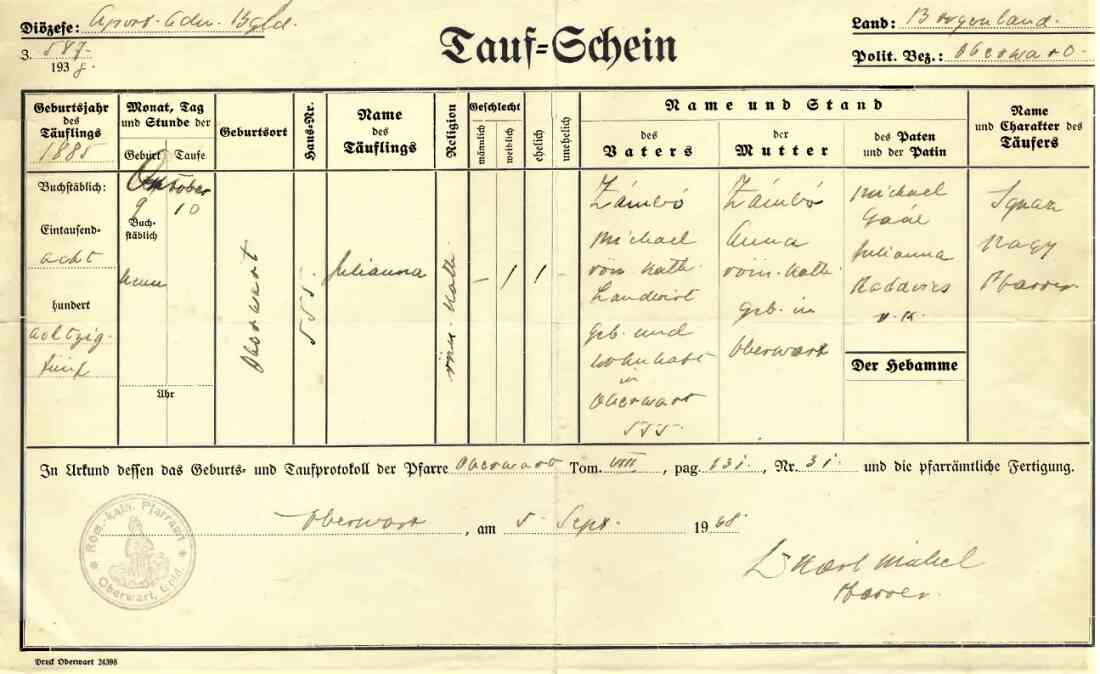 Diözese: Apost. Adm. Bgld.
3. 587.
193 8.
Tauf-Schein
Land: Burgenland.
Polit. Bez.: Oberwart.
Geburtsjahr des Täuflings
1885
Monat, Tag und Stunde der
Geburt Taufe
Geburtsort
Haus-Nr.
Name des Täuflings
Religion
Geschlecht
männlich
weiblich
ehelich
unehelich
Name und Stand
des Vaters
der Mutter
des Paten und der Patin
Name und Charakter des Täufers
Buchstäblich:
Eintausend-
acht
hundert
achtzig-
fünf
Oktober
9 10
Buch-
stäblich
neun
Uhr
Oberwart
555.
Julianna
röm.-kath.
– 1 1 –
Zámbó
Michael
röm. kath.
Landwirt
geb. und
wohnhaft
in
Oberwart
555.
Zámbó
Anna
röm.-kath.
geb. in
Oberwart
Michael
Gaál
Julianna
r. k.
Der Hebamme
Ignaz
Nagy
Pfarrer
In Urkund dessen das Geburts- und Taufprotokoll der Pfarre Oberwart Tom. VIII, pag. 131., Nr. 31. und die pfarrämtliche Fertigung.
Oberwart, am 5. Sept. 19
Röm.-kath. Pfarramt
Oberwart, Bgld.
Karl
Pfarrer.
Druck Oberwart 24398